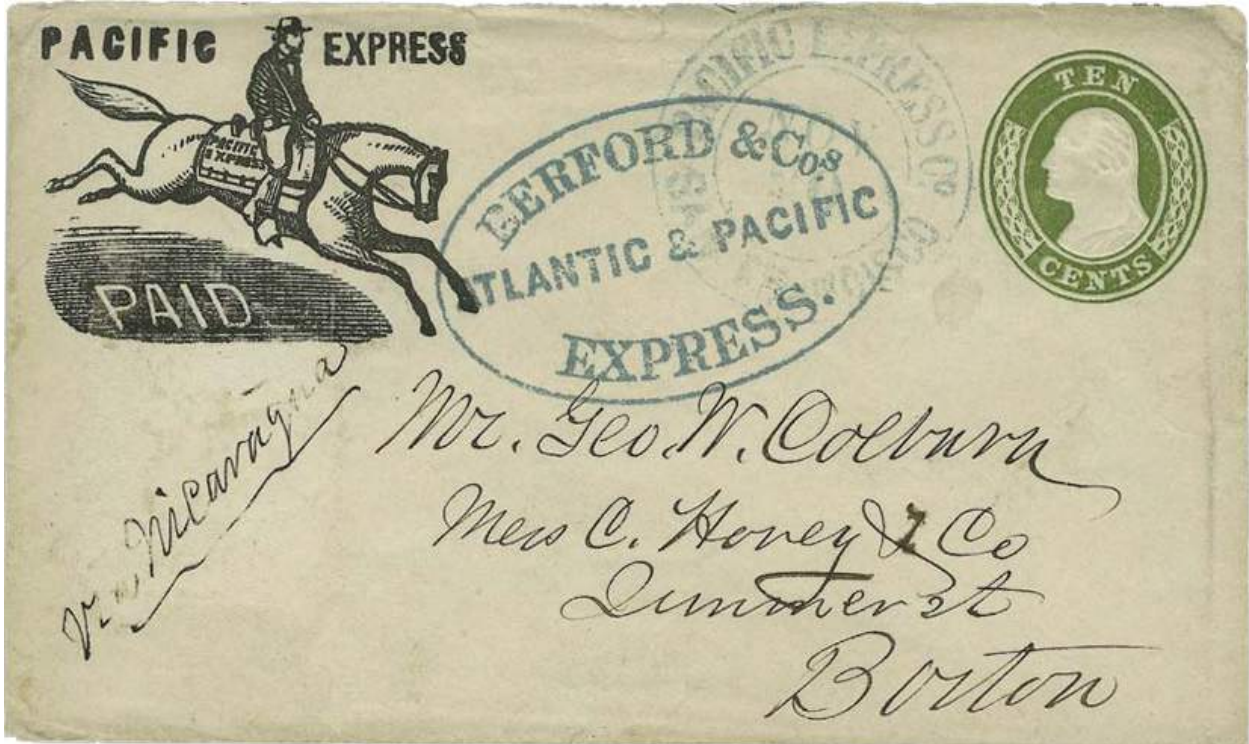 PACIFIC EXPRESS
PACIFIC
EXPRESS
PAID
BERFORD & Cos
ATLANTIC & PACIFIC
EXPRESS.
PACIFIC EXPRESS Co
NOV
TEN
CENTS
Via Nicaragua
Mr. Geo. W. Colburn
Mess C. Hovey & Co
Summer st
Boston